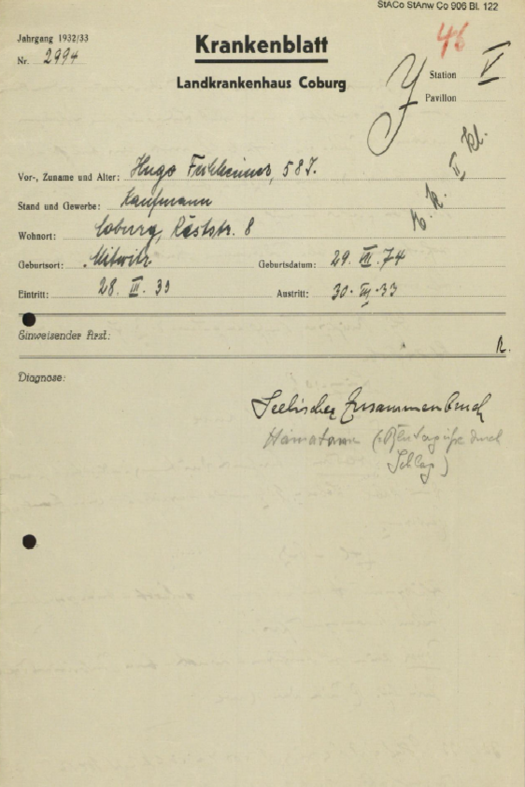 StACo StAnw Co 906 Bl. 122
46
Jahrgang 1932/33
Nr. 2994
Krankenblatt
Landkrankenhaus Coburg
Station V
Pavillon
II Kl.
Vor-, Zuname und Alter: Hugo 58 J.
Stand und Gewerbe: Kaufmann
Wohnort: Coburg, 8
Geburtsort: Mitwitz Geburtsdatum: 29. VII. 74
Eintritt: 28. III. 33 Austritt: 30. III. 33
Einweisender Arzt:
Diagnose:
Seelischer Zusammenbruch
Hämatome durch
Schlag)